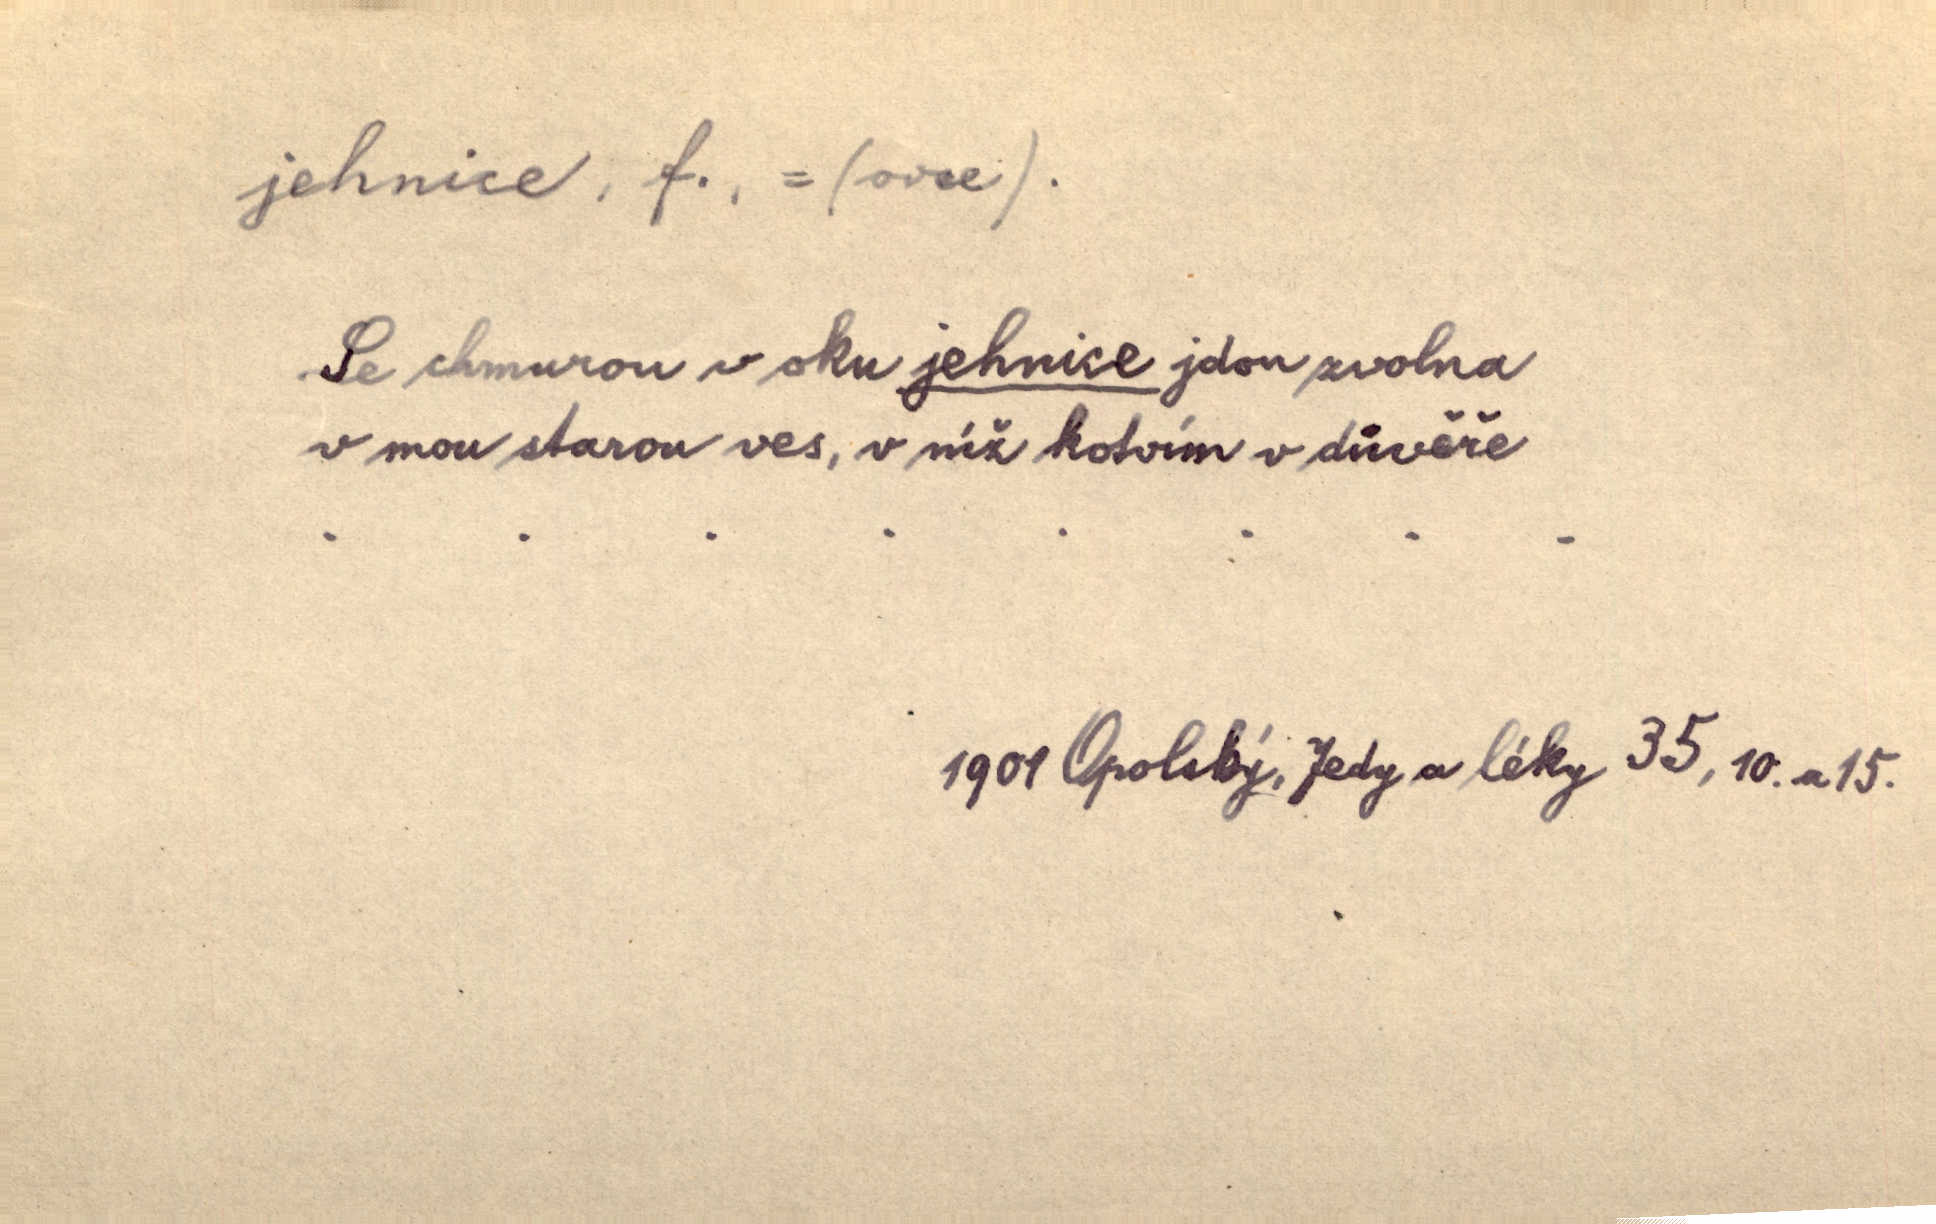 jehnice, f., = (ovce).
Se chmurou v oku jehnice jdou zvolna
v mou starou ves, v níž kotvím v důvěře
. . . . . . . .
1901 Opolský, Jedy a léky 35, 10. a 15.